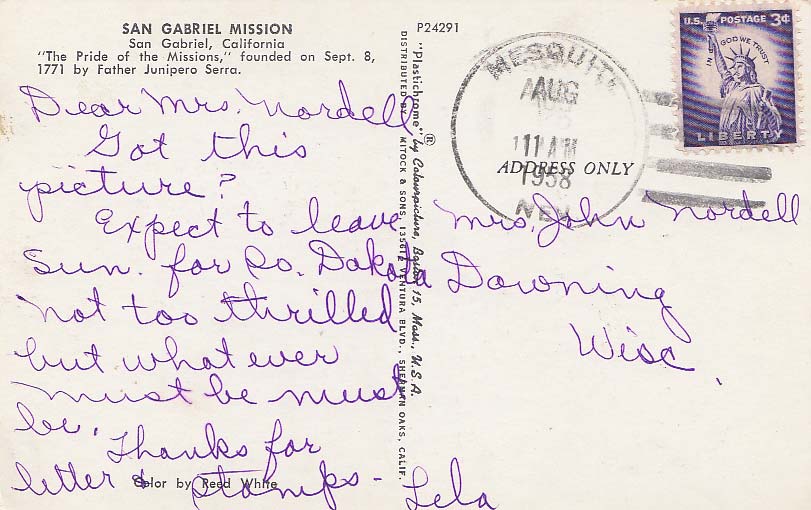 SAN GABRIEL MISSION
San Gabriel, California
"The Pride of the Missions," founded on Sept. 8,
1771 by Father Junipero Serra.
Dear Mrs. Nordell,
Got this
picture?
Expect to leave
Sun. for So. Dakota
Not too thrilled
but what ever
must be must
be. Thanks for
letter & stamps -
Lela
Color by Reed White
P24291
"Plastichrome" ® by Colourpicture, Boston 15, Mass., U.S.A.
DISTRIBUTED BY MITOCK & SONS, 13561 VENTURA BLVD., SHERMAN OAKS, CALIF.
MESQUITE
AUG
11 AM
1958
NEV.
U.S. POSTAGE 3¢
IN GOD WE TRUST
LIBERTY
ADDRESS ONLY
Mrs. John Nordell
Downing
Wisc.